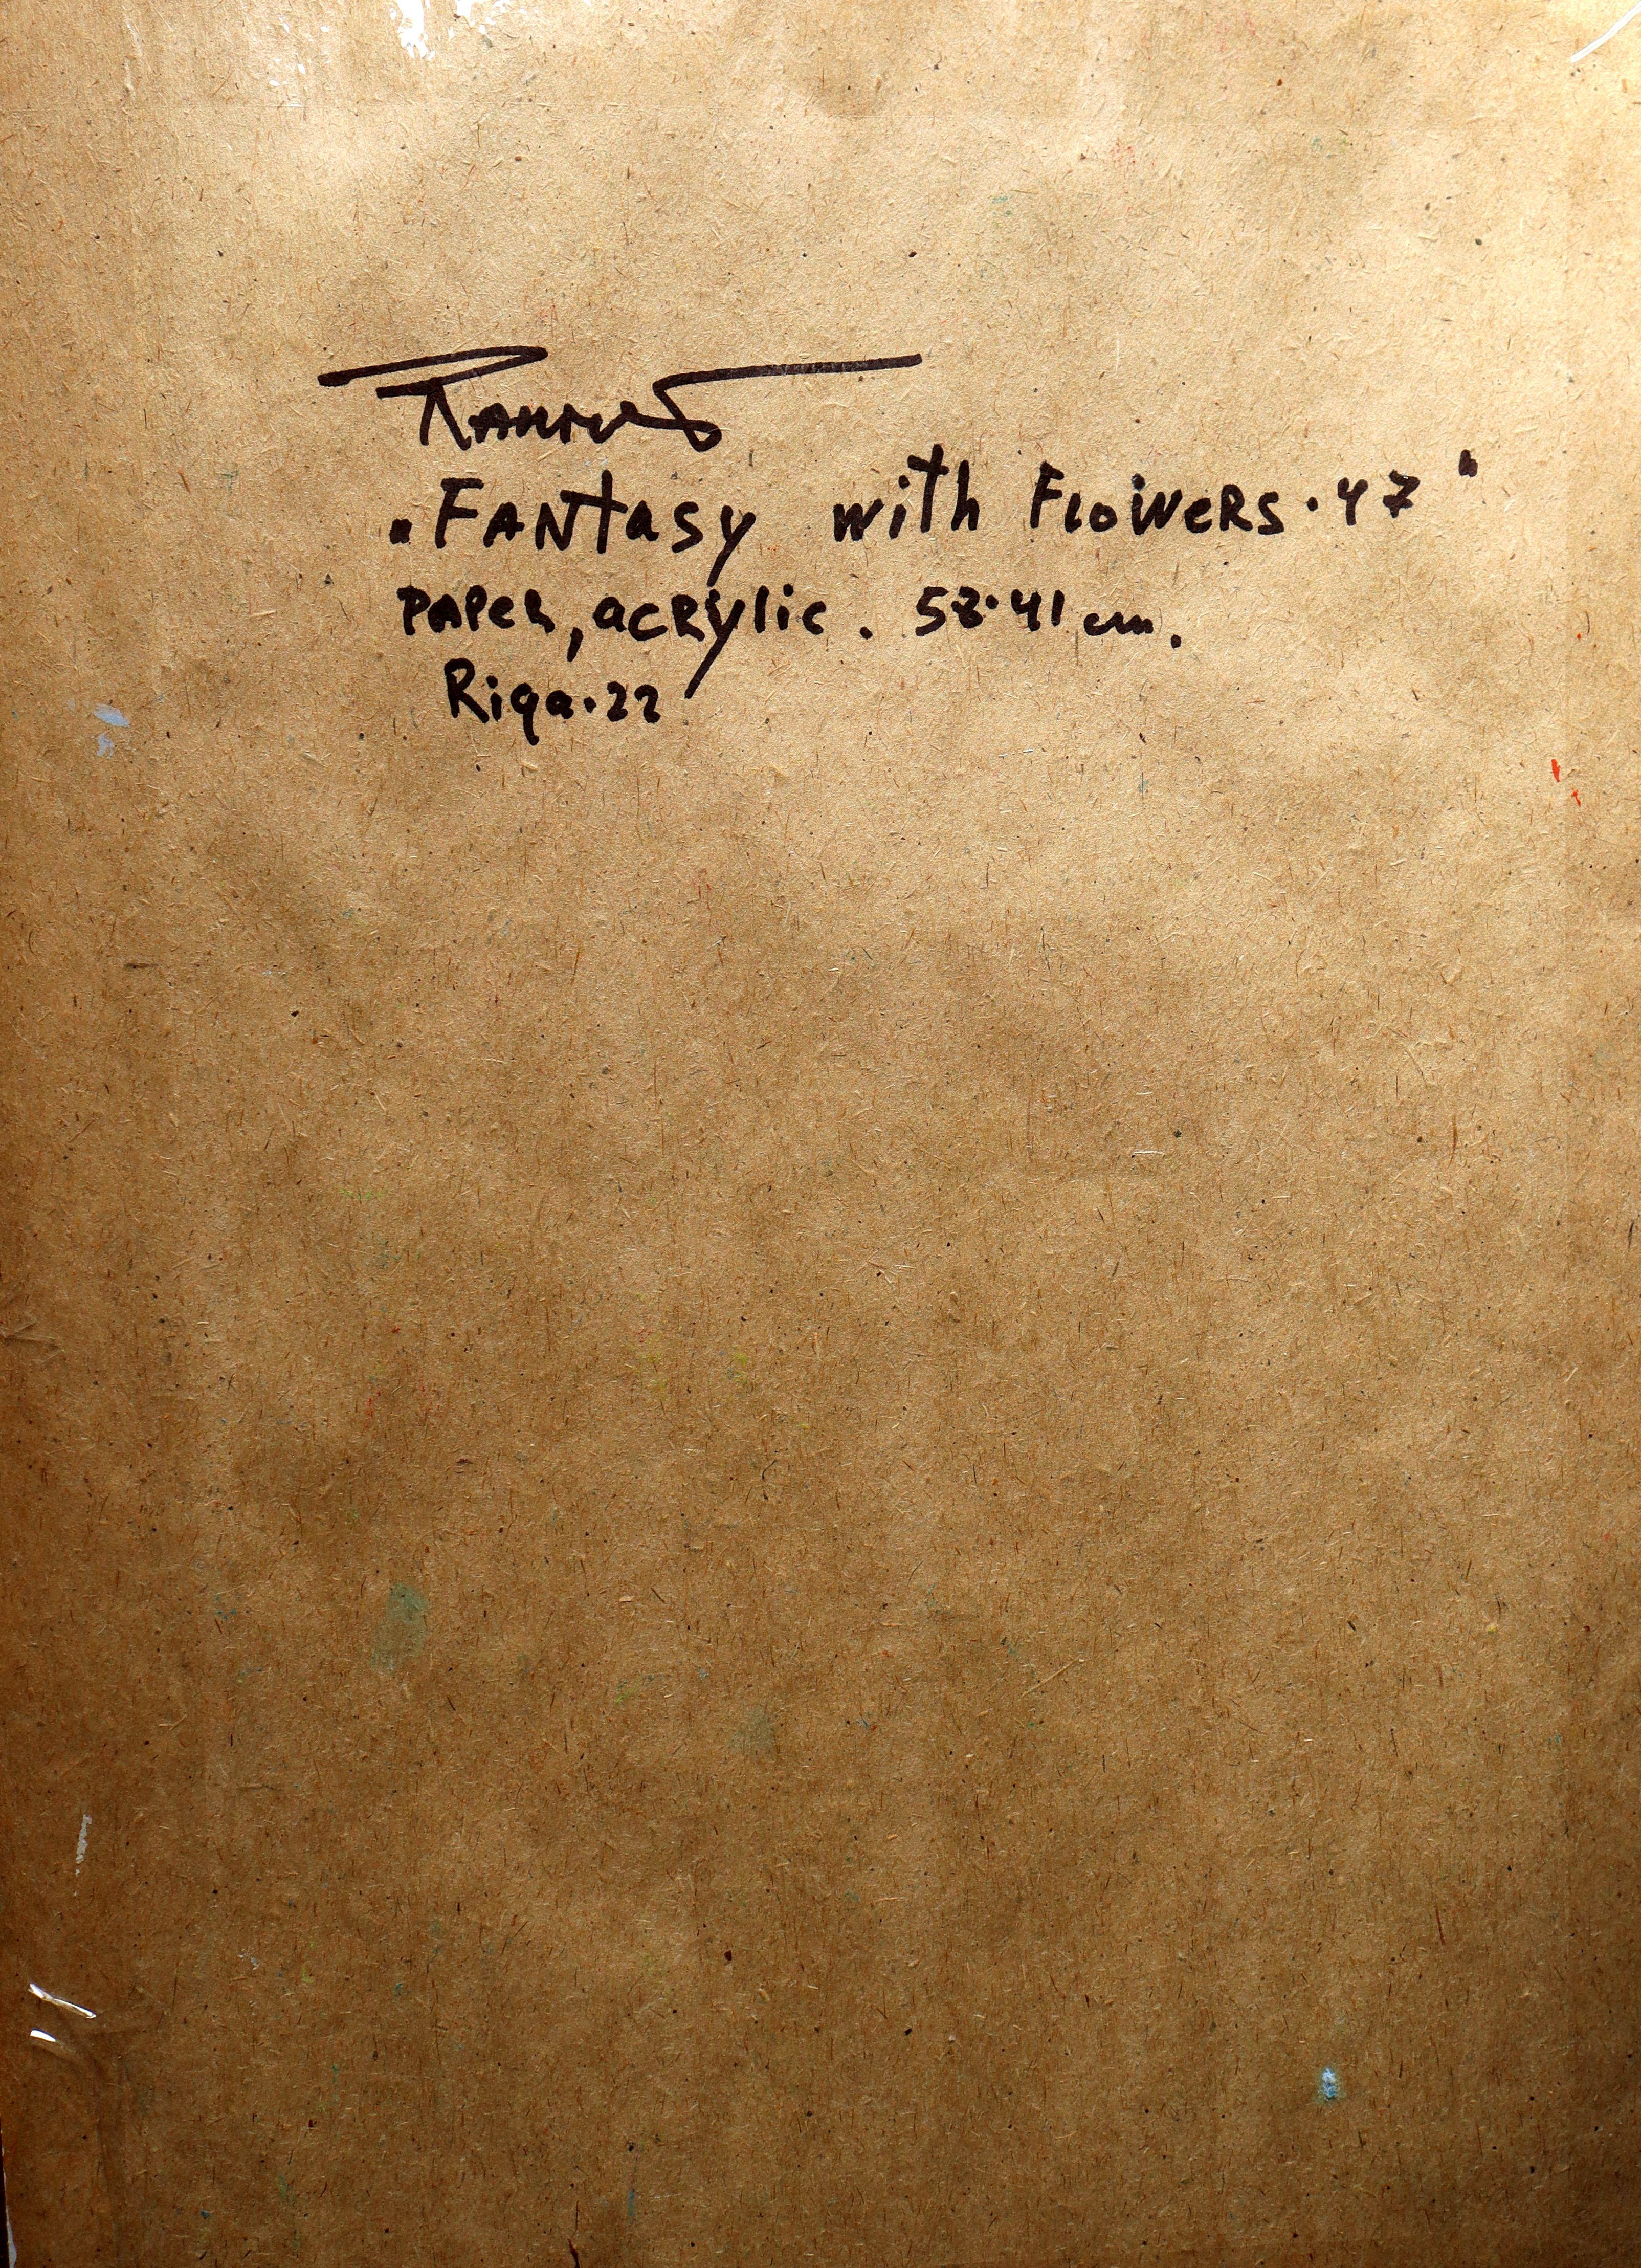 „Fantasy with Flowers·47"
paper, acrylic. 58·41 cm.
Riga·22